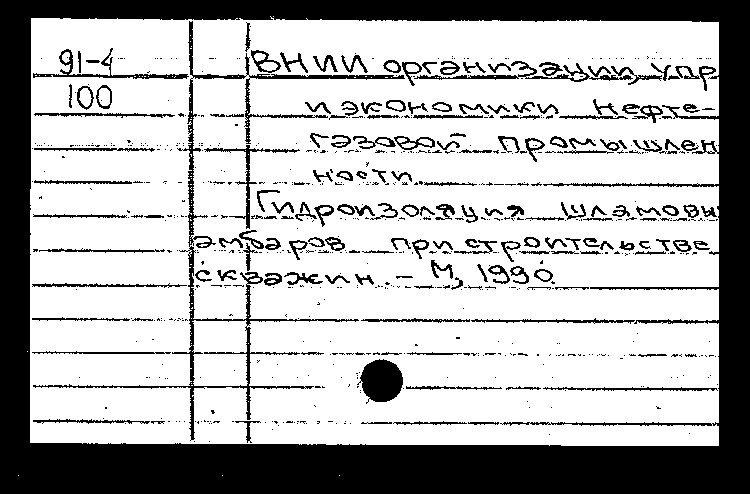 91-4 ВНИИ организации, упр
100 и экономики нефте-
газовой промышлен
ности.
Гидроизоляция шламовы
амбаров при строительстве
скважин. – М, 1990